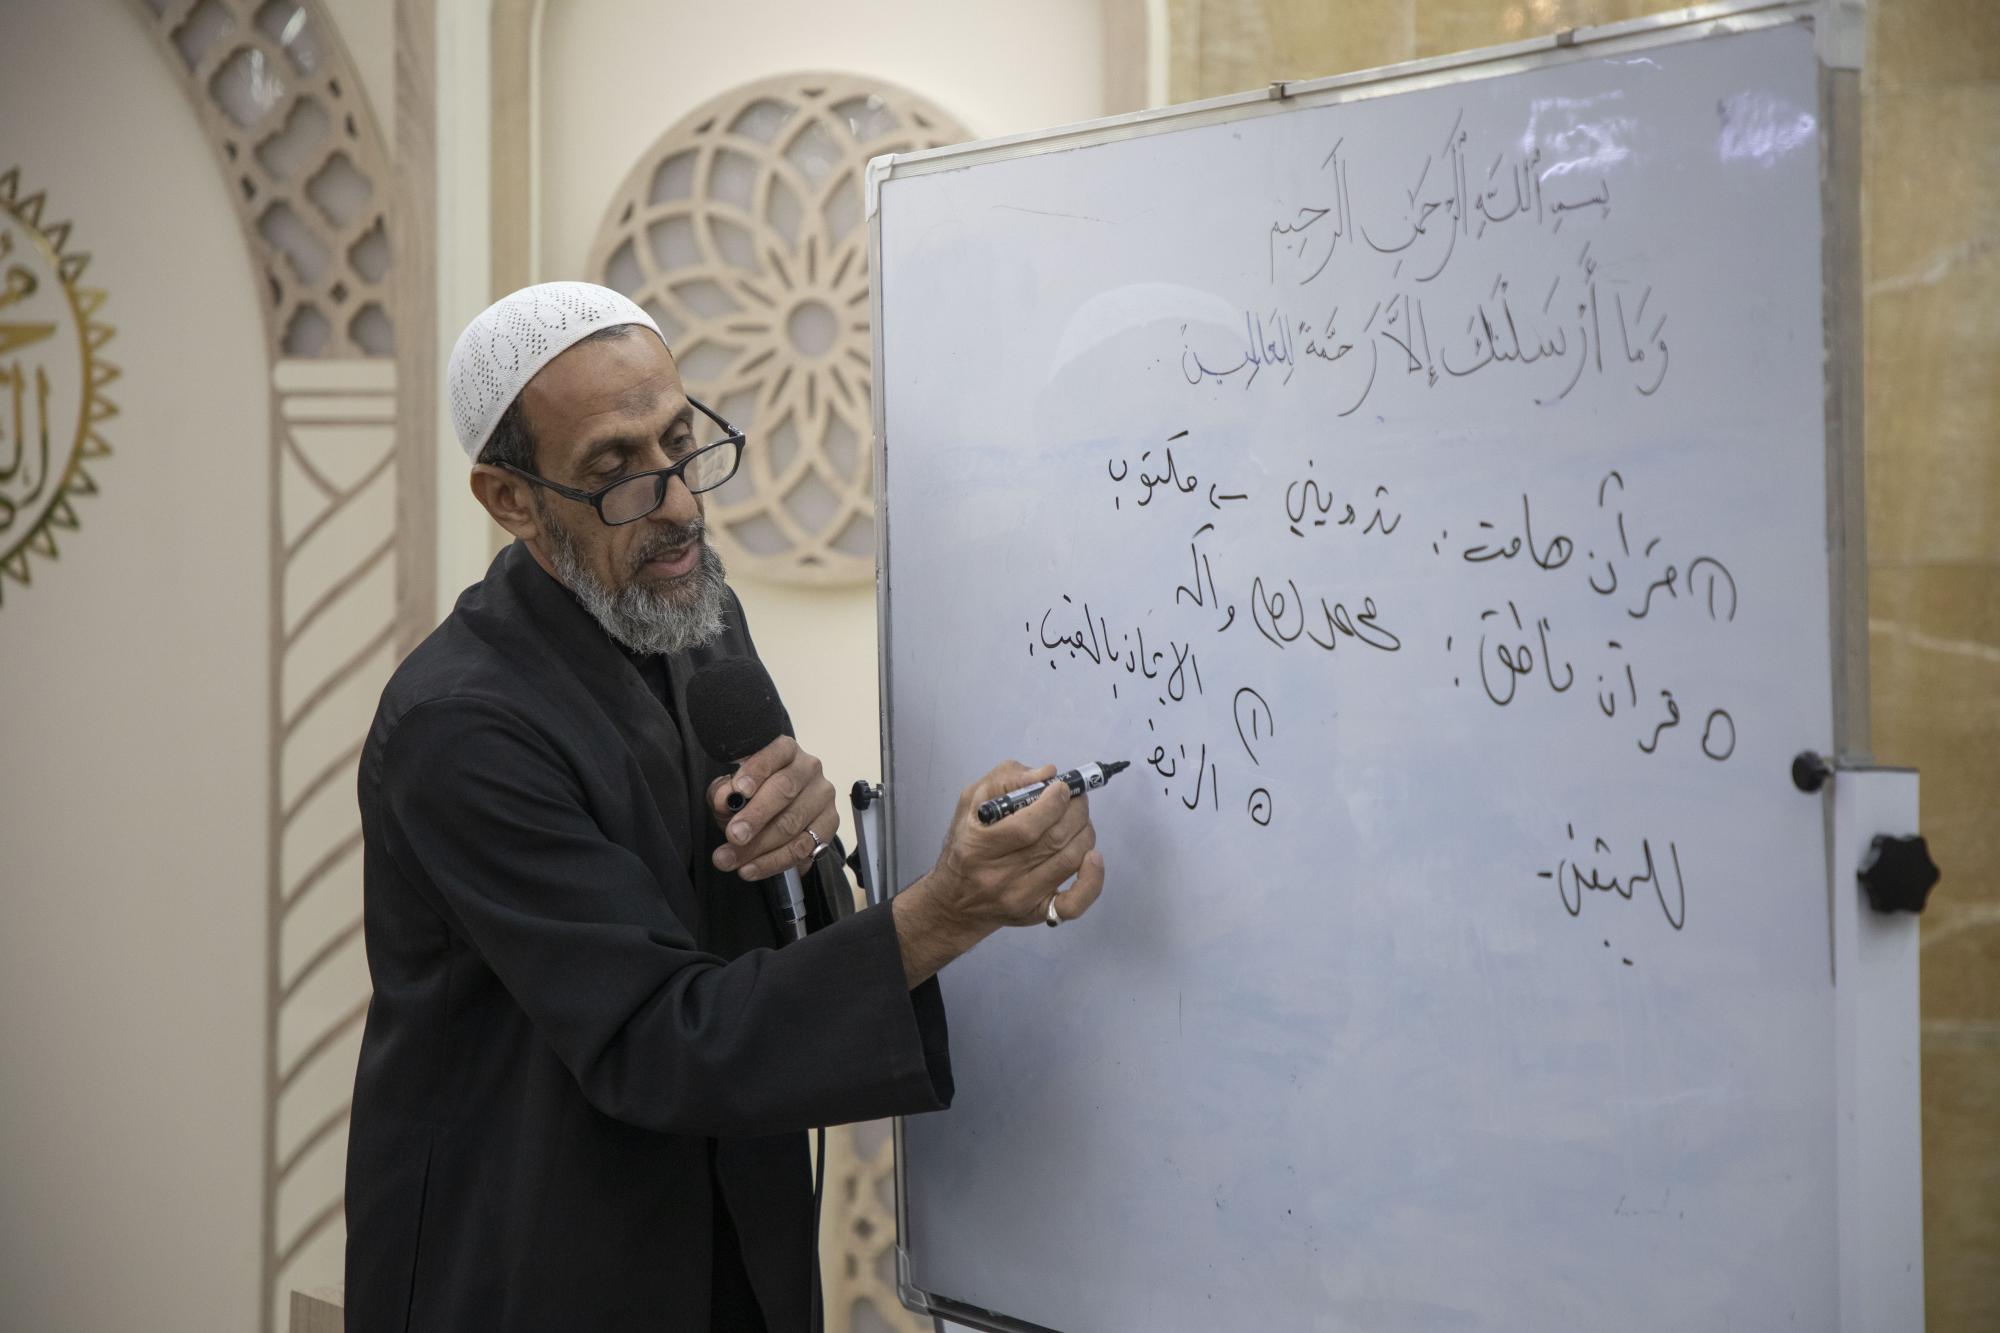 بِسمِ ٱللَّهِ ٱلرَّحمَٰنِ ٱلرَّحِيم
وَمَا أَرْسَلْنَٰكَ إِلاَّ رَحمَةً لِلعَالَمِينَ
① قرآن صامت : تدويني ← مكتوب
٥ قرآن ناطق : محمد (ص) وآله
الايمان بالغيب :
①
٥
للمتقين -
الله